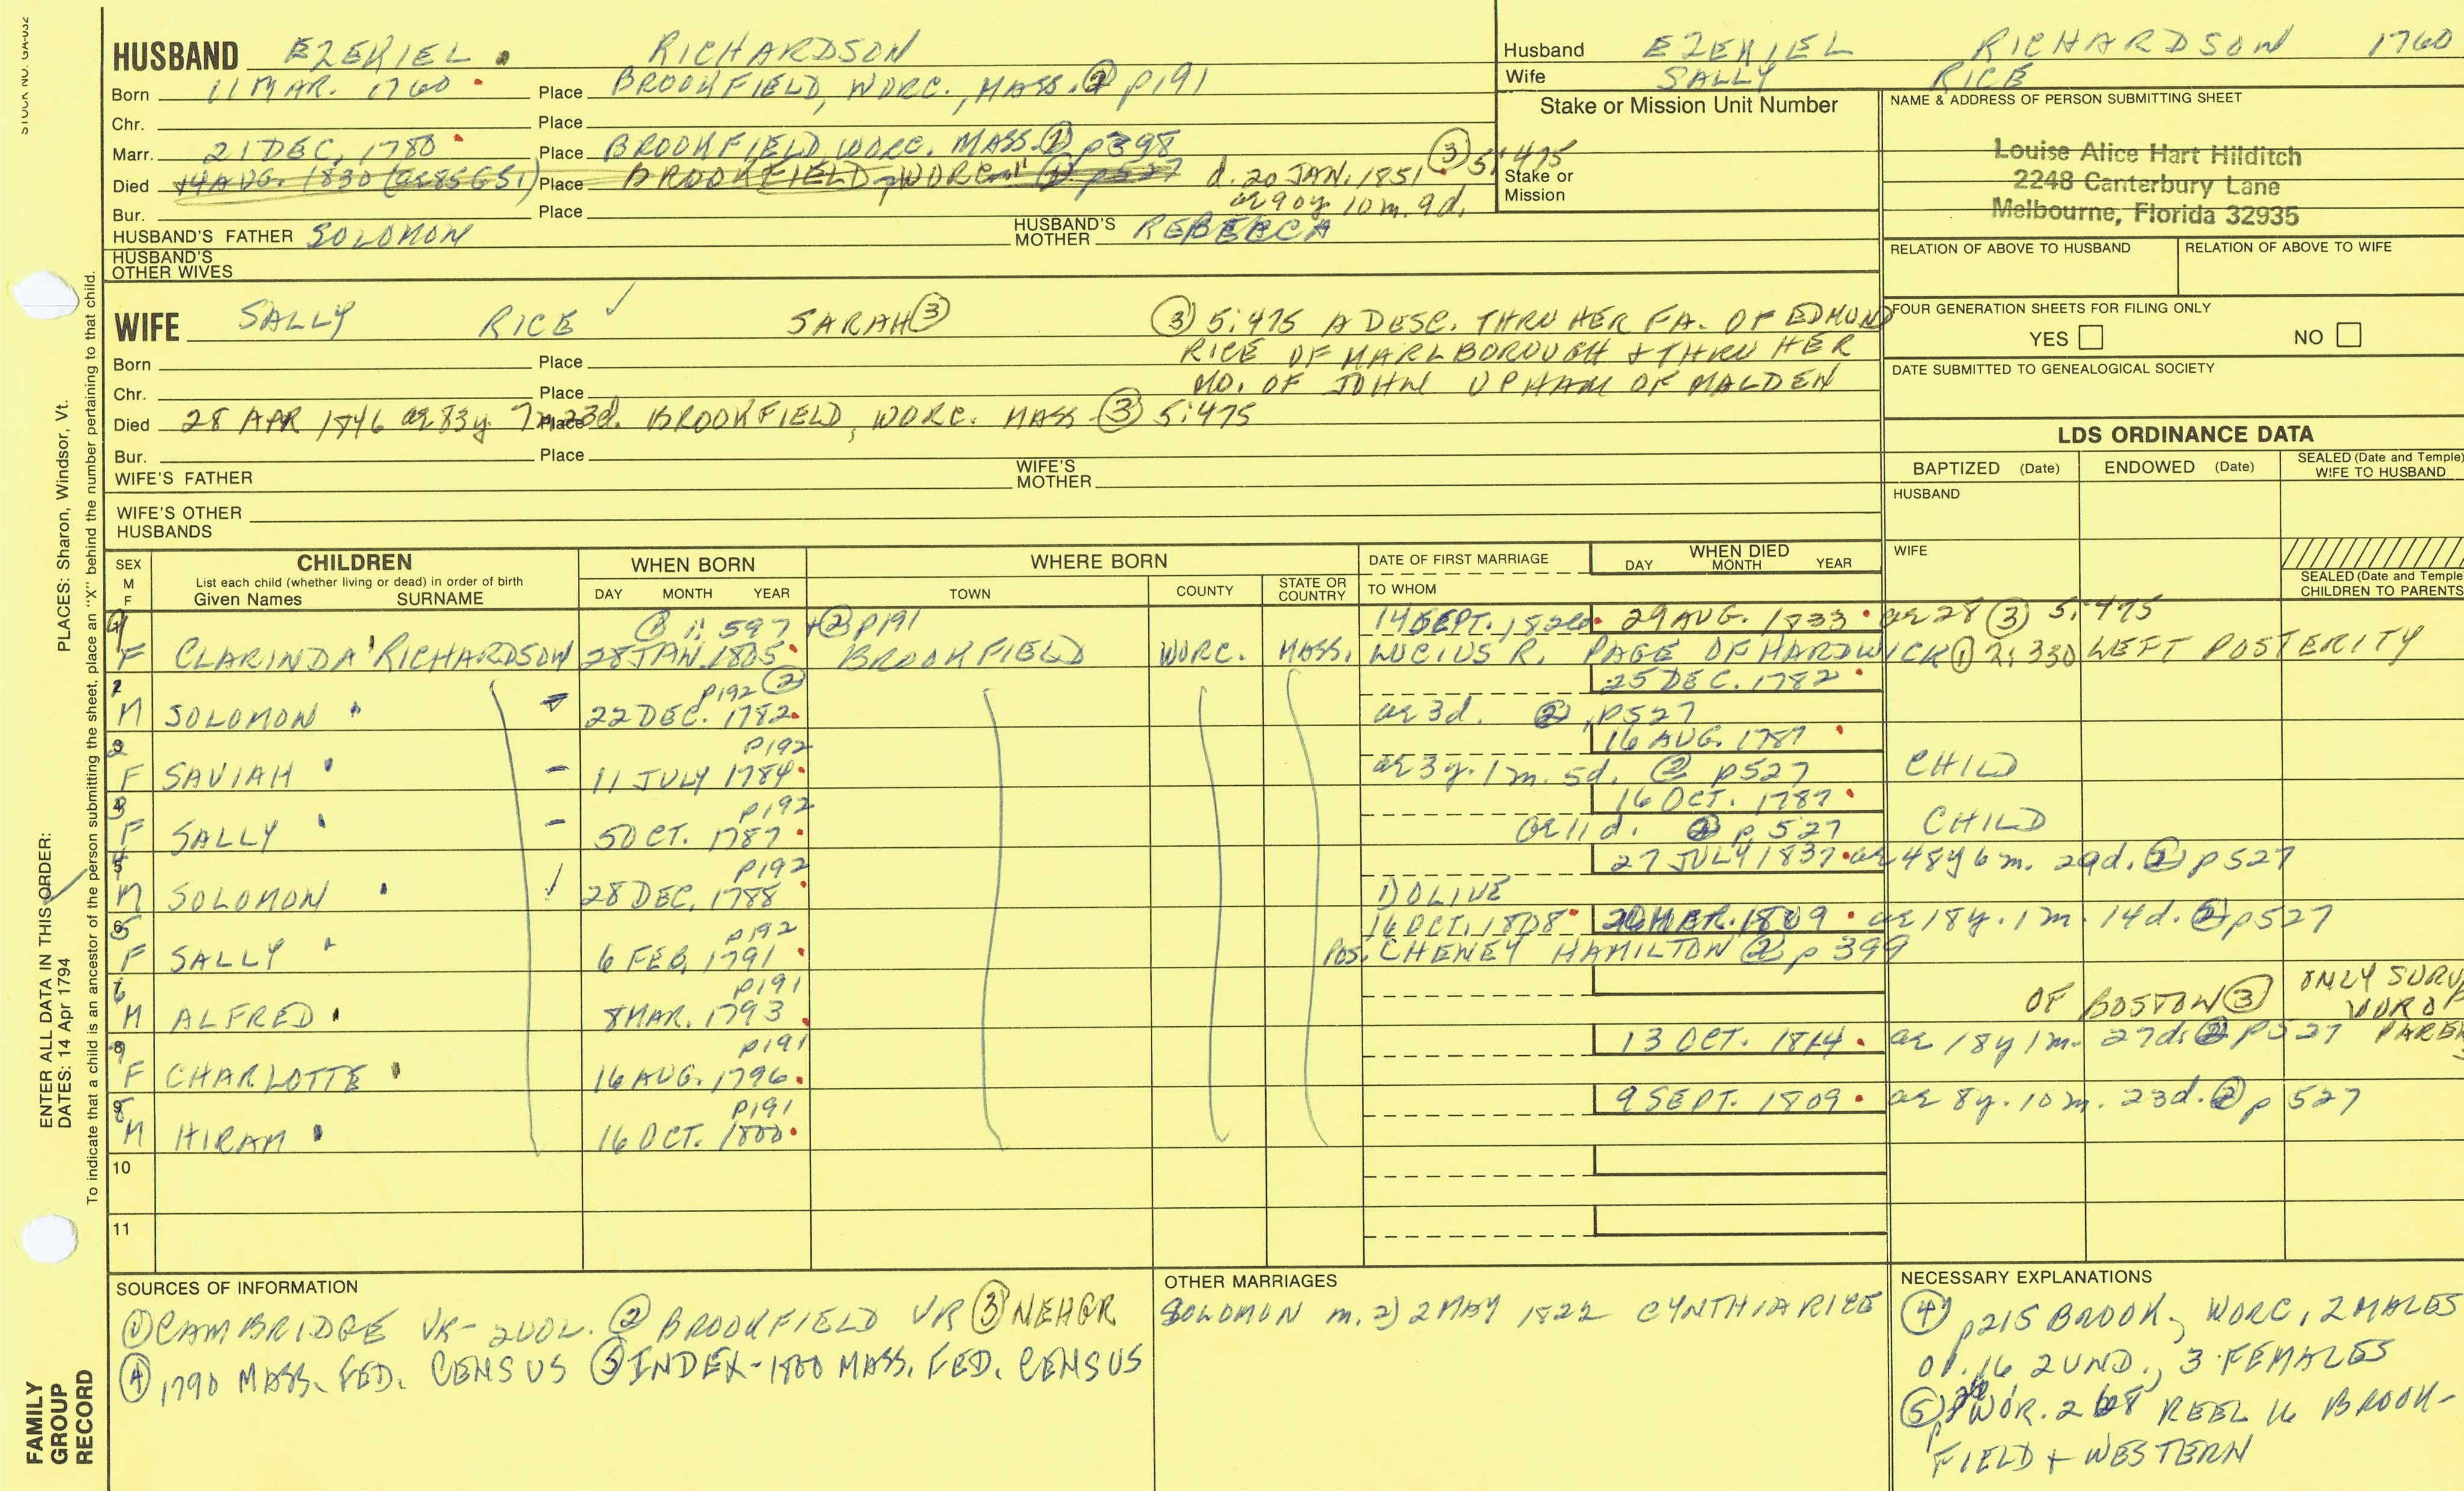 STOCK NO. GA-032
HUSBAND EZEKIEL RICHARDSON
Born 11 MAR. 1760 Place BROOKFIELD, WORC., MASS. ② p191
Chr. Place
Marr. 21 DEC. 1780 Place BROOKFIELD WORC. MASS. ② p398
Died 14 AUG. 1830 (ae 85 GS1) Place BROOKFIELD, WORC. p527 d. 20 JAN. 1851 ③ 5:475
ae 90y 10m. 9d.
Bur. Place
HUSBAND'S FATHER SOLOMON HUSBAND'S MOTHER REBECCA
HUSBAND'S OTHER WIVES
Husband EZEKIEL RICHARDSON 1760
Wife SALLY RICE
Stake or Mission Unit Number
Stake or Mission
NAME & ADDRESS OF PERSON SUBMITTING SHEET
Louise Alice Hart Hilditch
2248 Canterbury Lane
Melbourne, Florida 32935
RELATION OF ABOVE TO HUSBAND RELATION OF ABOVE TO WIFE
FOUR GENERATION SHEETS FOR FILING ONLY
YES NO
DATE SUBMITTED TO GENEALOGICAL SOCIETY
WIFE SALLY RICE SARAH ③ ③ 5:475 A DESC. THRU HER FA. OF EDMUND
RICE OF MARLBOROUGH & THRU HER
MO. OF JOHN UPHAM OF MALDEN
Born Place
Chr. Place
Died 28 APR 1846 ae 83y 7m 23d. Place BROOKFIELD, WORC. MASS ③ 5:475
Bur. Place
WIFE'S FATHER WIFE'S MOTHER
WIFE'S OTHER HUSBANDS
LDS ORDINANCE DATA
BAPTIZED (Date) ENDOWED (Date) SEALED (Date and Temple) WIFE TO HUSBAND
HUSBAND
WIFE
SEALED (Date and Temple) CHILDREN TO PARENTS
SEX M F CHILDREN List each child (whether living or dead) in order of birth Given Names SURNAME
WHEN BORN DAY MONTH YEAR
WHERE BORN TOWN COUNTY STATE OR COUNTRY
DATE OF FIRST MARRIAGE TO WHOM
WHEN DIED DAY MONTH YEAR
1: 597 + ② p191 14 SEPT. 1826 29 AUG. 1833 ae 28 ③ 5:475
F CLARINDA RICHARDSON 28 JAN. 1805 BROOKFIELD WORC. MASS. LUCIUS R. PAGE OF HARDWICK ① 2:330 LEFT POSTERITY
p192 ② 25 DEC. 1782
M SOLOMON 22 DEC. 1782 ae 3d. ② p527
p192 16 AUG. 1787
F SAVIAH 11 JULY 1784 ae 3y. 1m. 5d. ② p527 CHILD
p192 16 OCT. 1787
F SALLY 5 OCT. 1787 ae 11d. ② p527 CHILD
p192 27 JULY 1837 ae 48y 6m. 29d. ② p527
M SOLOMON 28 DEC. 1788 1) OLIVE
p192 16 OCT. 1808 MAR. 1809 ae 18y. 1m. 14d. ② p527
F SALLY 6 FEB. 1791 POS. CHENEY HAMILTON ② p 399
p191
M ALFRED 8 MAR. 1793 OF BOSTON ③ ONLY SURV
p191 13 OCT. 1814 ae 18y 1m. 27d. ② p527
F CHARLOTTE 16 AUG. 1796
p191 9 SEPT. 1809 ae 8y. 10m. 23d. ② p 527
M HIRAM 16 OCT. 1800
10
11
SOURCES OF INFORMATION
① CAMBRIDGE VR- 2 VOL. ② BROOKFIELD VR ③ NEHGR
④ 1790 MASS. FED. CENSUS ⑤ INDEX-1800 MASS. FED. CENSUS
OTHER MARRIAGES
SOLOMON m. 2) 2 MAY 1822 CYNTHIA RICE
NECESSARY EXPLANATIONS
④ p215 BROOK., WORC, 2 MALES
OV. 16 2 UND., 3 FEMALES
⑤ WOR. REEL 16 BROOK-
FIELD + WESTERN
ENTER ALL DATA IN THIS ORDER:
DATES: 14 Apr 1794 PLACES: Sharon, Windsor, Vt.
To indicate that a child is an ancestor of the person submitting the sheet, place an "X" behind the number pertaining to that child.
FAMILY
GROUP
RECORD